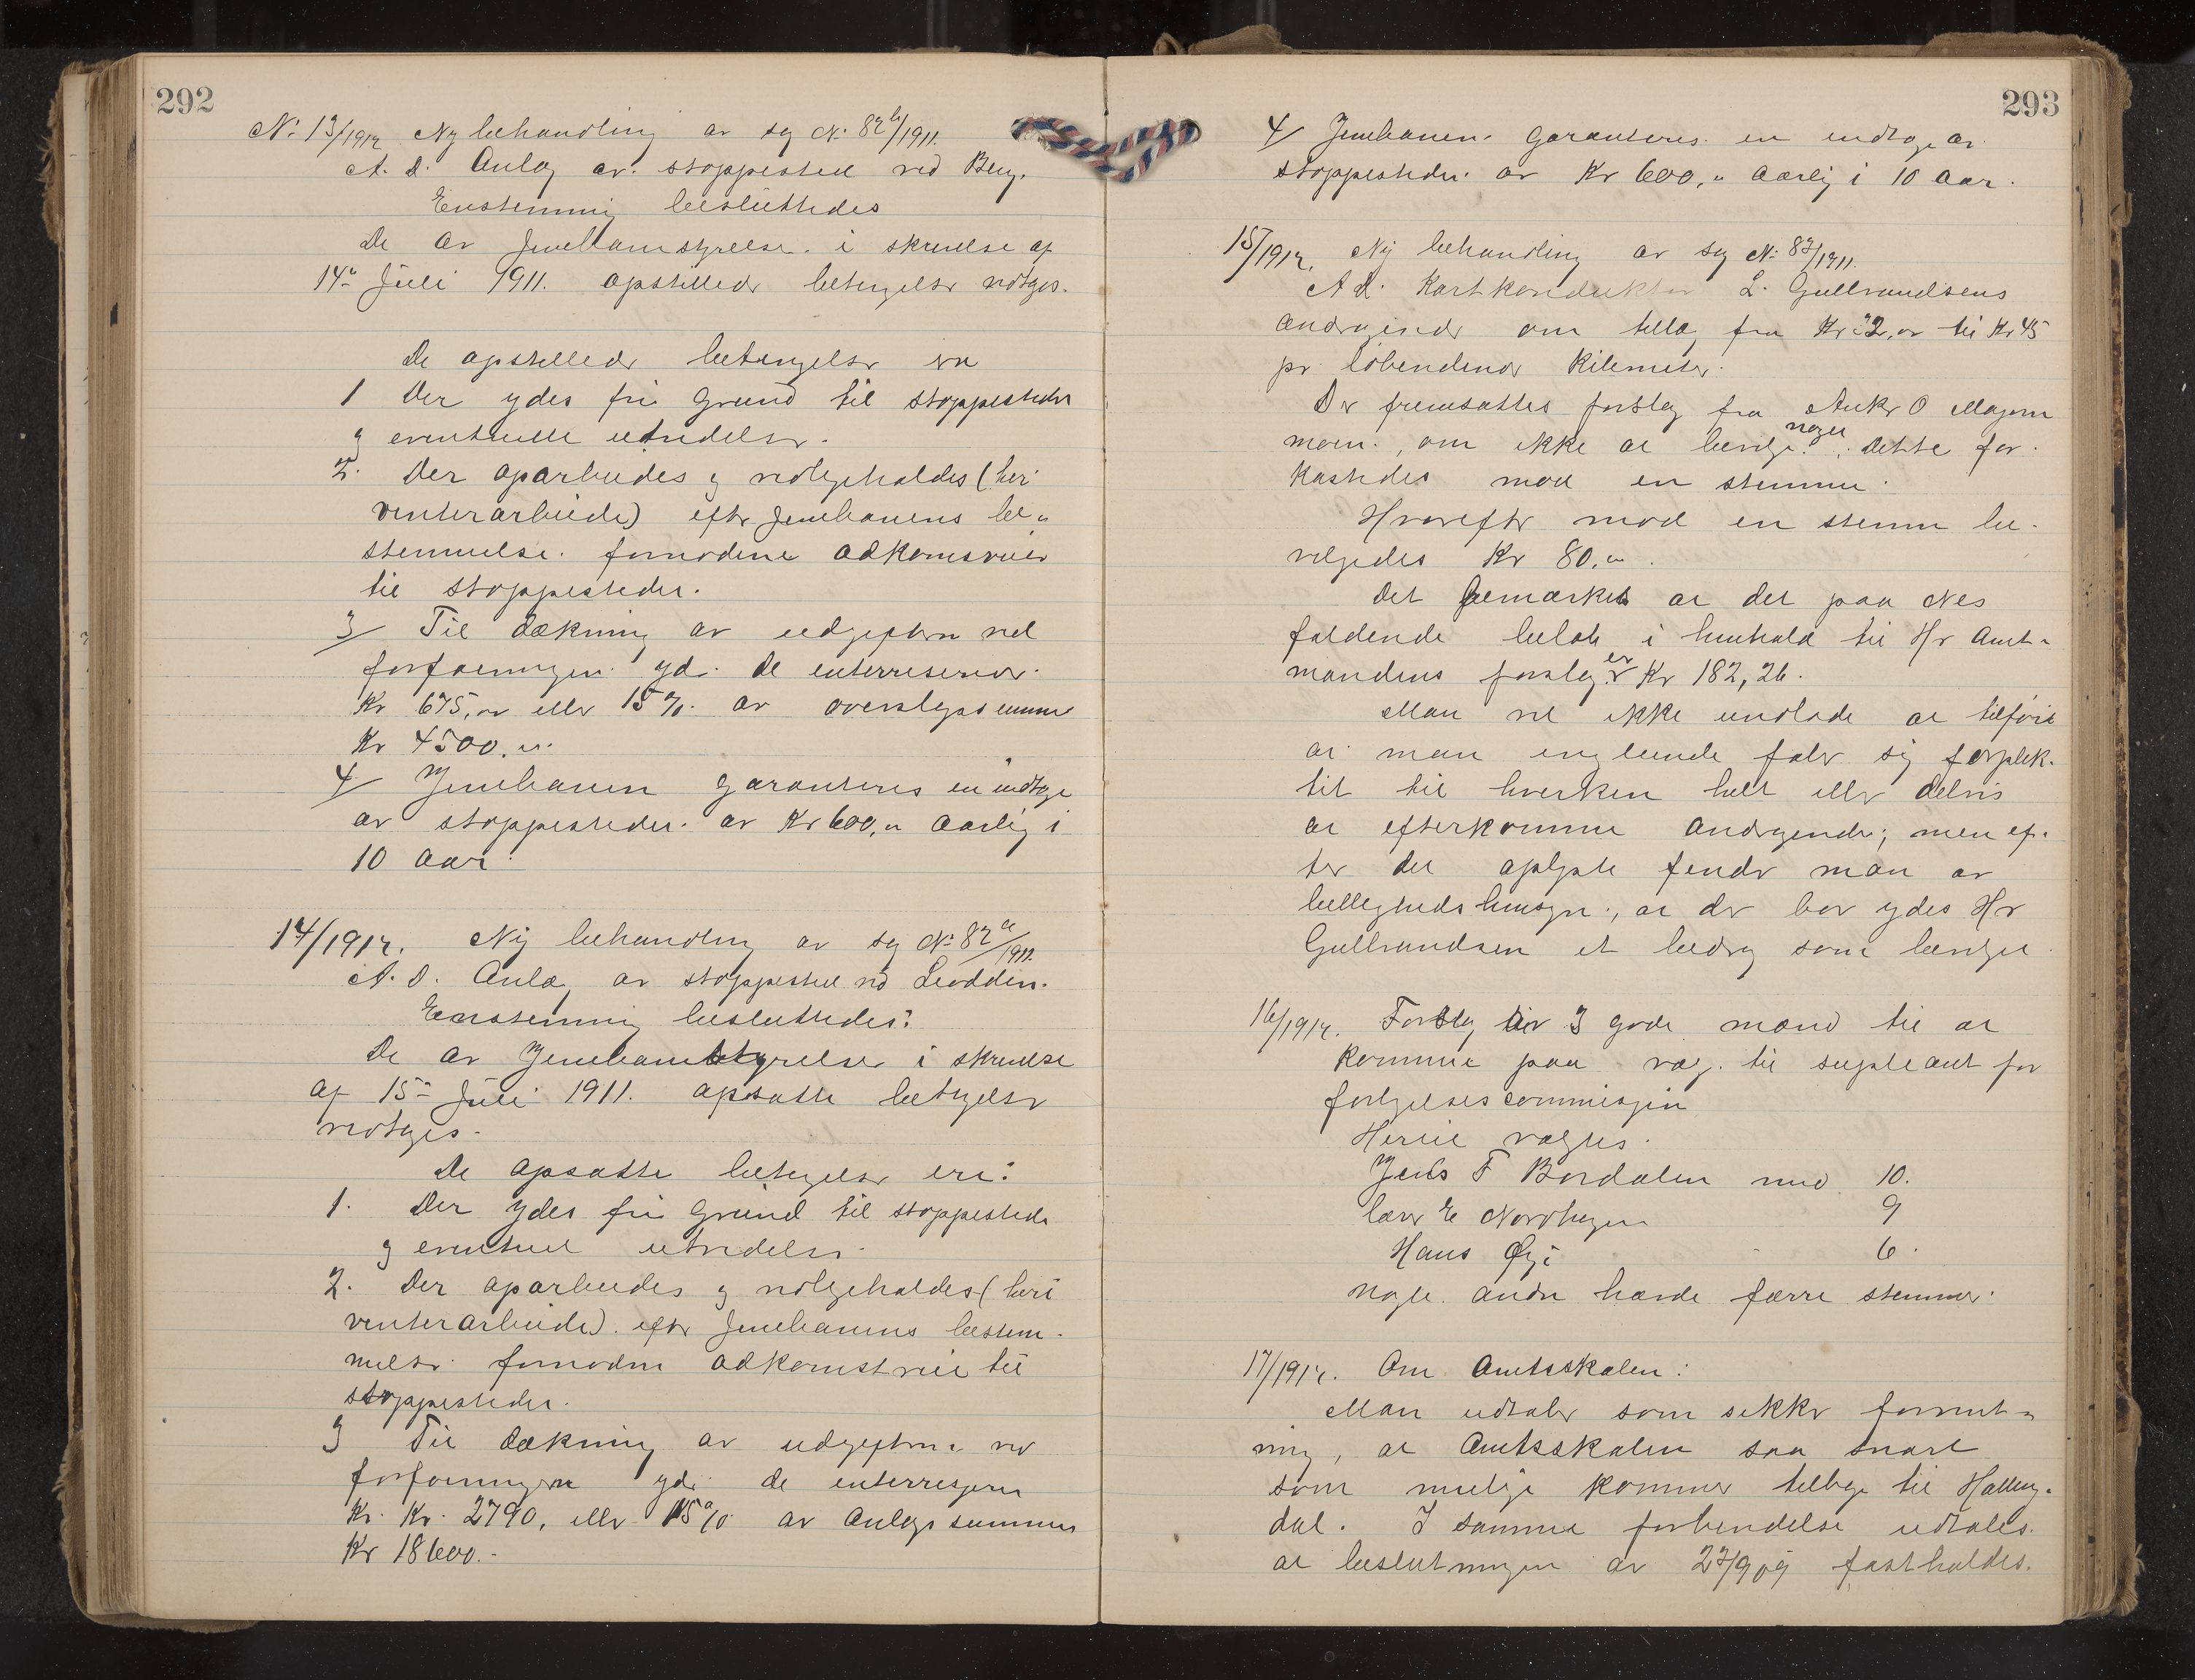 292
No 13/1912 Ny behandling av sag No 82 b/1911.
A. d. Anlæg av stoppested ved Berg.
Enstemmig besluttedes
De av Jernbanestyrelse i skrivelse af
14de Juli 1911. opstillede betingelser vedtages.
De opstillede betingelser er
1 Der ydes fri Grund til stoppestedet
og eventuelle utvidelser.
2. Der oparbeides og vedligeholdes (heri
vinterarbeide) efter jernbanens be-
stemmelse. fornødne adkomsveier
til stoppestedet.
3/ Til dækning av udgifterne ved
forføiningen yder de interreserede
Kr 675,00 eller 15%. av overslagssumme
Kr 4500,00.
4/ Jernbanen garanteres en indtægt
av stoppestedet av Kr 600,00 aarlig i
10 aar.
14/1912. Ny behandling av sag No 82 a/1911.
A. d. Anlæg av stoppested ved Liodden.
Enstemmig besluttedes:
De av Jernbanestyrelse i skrivelse
af 15de Juli 1911. opsatte betingelser
vedtages.
De opsatte betingelser er:
1. Der ydes fri Grund til stoppestedet
og eventuel utvidelse.
2. Der oparbeides og vedligeholdes (heri
vinterarbeide). efter Jernbanens bestem-
melser fornødne adkomstveie til
stoppestedet.
3 Til dækning av udgifterne ved
forføiningen yder de interreserte
Kr. Kr. 2790, eller 15%. av Anlægssummen
Kr 18600.-
293
4/ Jernbanen garanteres en indtægt av
stoppestedet av Kr 600,00 aarlig i 10 aar.
15/1912. Ny behandling av sag No 83/1911.
A d. Kartkonduktør L. Gulbrandsens
andragende om tillæg fra Kr 32,00 til Kr 45
pr. løbendende kilometer.
Der fremsattes forslag fra Anker O
om ikke at bevilge noget. dette for-
kastedes mod en stemme.
Hvorefter mod en stemme be-
vilgedes Kr 80,00.
Det bemærkes at det paa Nes
faldende beløb i henhold til Hr Amt-
mandens forslag er Kr 182,26.
Man vil ikke undlade at tilføie
at man ingenlunde føler sig forplik-
tet til hverken helt eller delvis
at efterkomme andragende; men ef-
ter det oplyste finder man av
billighedshensyn, at der bør ydes Hr
Gulbrandsen et bidrag som bevilget
16/1912. Forslag til 3 gode mænd til at
komme paa valg til supleant for
forligelsescommisjon
Hertil valgtes.
Jens F Bordalen med 10.
lærer E Nordhagen 9
Hans Øyi 6.
nogle andre havde færre stemmer.
17/1912. Om Amtsskolen:
Man udtaler som sikker forvent-
ning, at Amtsskolen saa snart
som mulig kommer tilbage til Halling-
dal. I samme forbindelse udtales
at beslutningen av 27/9 09 fastholdes.